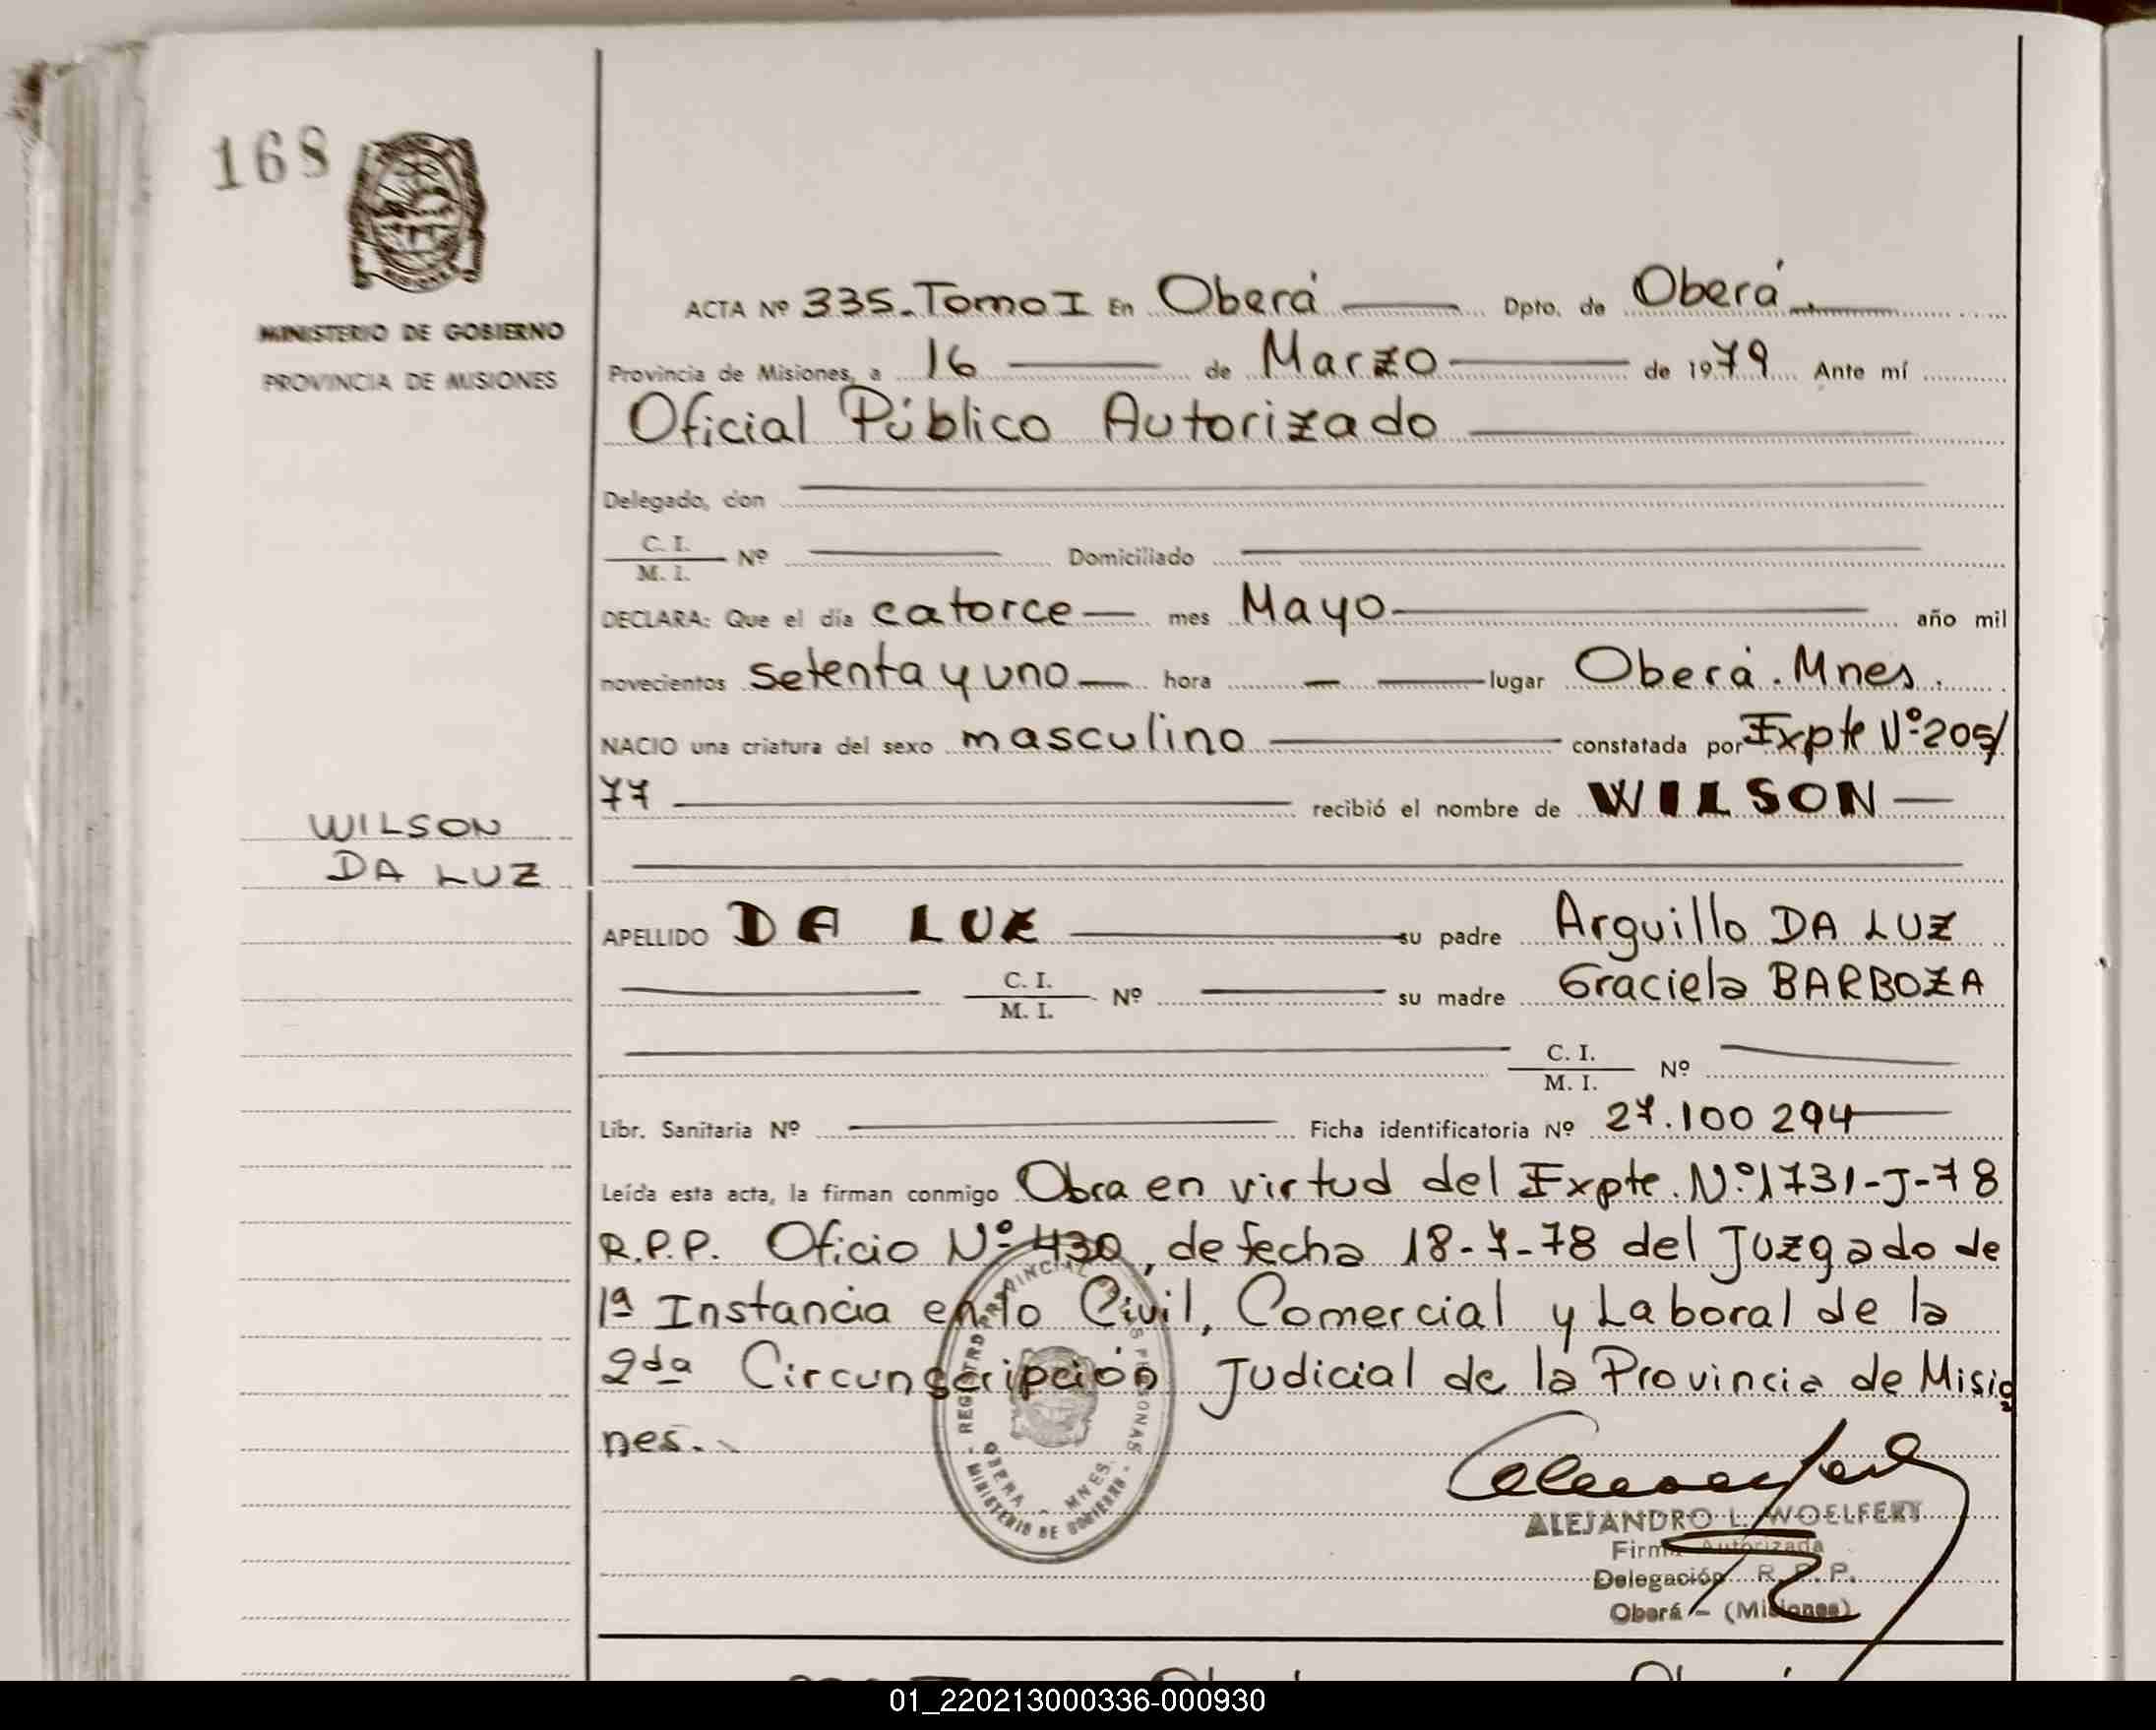 168
MINISTERIO DE GOBIERNO
PROVINCIA DE MISIONES
WILSON
DA LUZ
ACTA Nº 335. Tomo I En Oberá Dpto. de Oberá.
Provincia de Misiones, a 16 de Marzo de 1979 Ante mí
Oficial Público Autorizado
Delegado, don
C. I.
M. I. Nº Domiciliado
DECLARA: Que el día catorce mes Mayo año mil
novecientos setenta y uno hora — lugar Oberá. Mnes.
NACIO una criatura del sexo masculino constatada por Expte Nº 205/
77 recibió el nombre de WILSON
APELLIDO DA LUZ su padre Arguillo DA LUZ
C. I.
M. I. Nº su madre Graciela BARBOZA
C. I.
M. I. Nº
Libr. Sanitaria Nº Ficha identificatoria Nº 27.100 294
Leída esta acta, la firman conmigo Obra en virtud del Expte. Nº 1731-J-78
R.P.P. Oficio Nº 430, de fecha 18-7-78 del Juzgado de
1ª Instancia en lo Civil, Comercial y Laboral de la
2da Circunscripción Judicial de la Provincia de Misio
nes.
REGISTRO PROVINCIAL PERSONAS
OBERA - MNES.
MINISTERIO DE GOBIERNO
ALEJANDRO L. WOELFERT
Firma Autorizada
Delegación R. P. P.
Oberá - (Misiones)
01_220213000336-000930